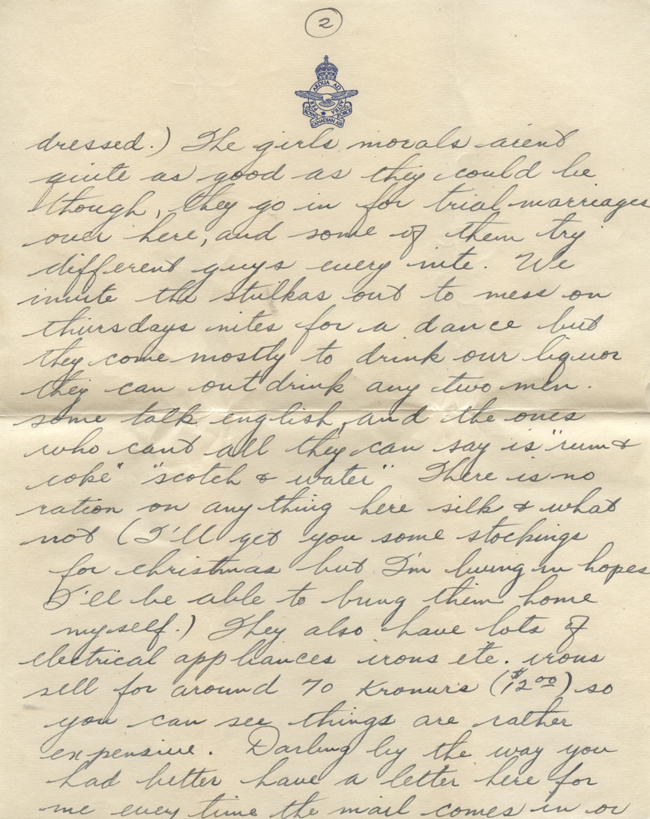 2
dressed.) The girls morals arent
quite as good as they could be
though, they go in for trial marriages
over here, and some of them try
different guys every nite. We
invite the stulkas out to mess on
thursdays nites for a dance but
they come mostly to drink our liquor
they can out drink any two men.
some talk english, and the ones
who cant all they can say is "rum &
coke" "scotch & water" There is no
ration on any thing here silk & what
not (I'll get you some stockings
for christmas but I'm living in hopes
I'll be able to bring them home
myself.) They also have lots of
electrical appliances irons etc. irons
sell for around 70 Kronurs ($12.00) so
you can see things are rather
expensive. Darling by the way you
had better have a letter here for
me every time the mail comes in or